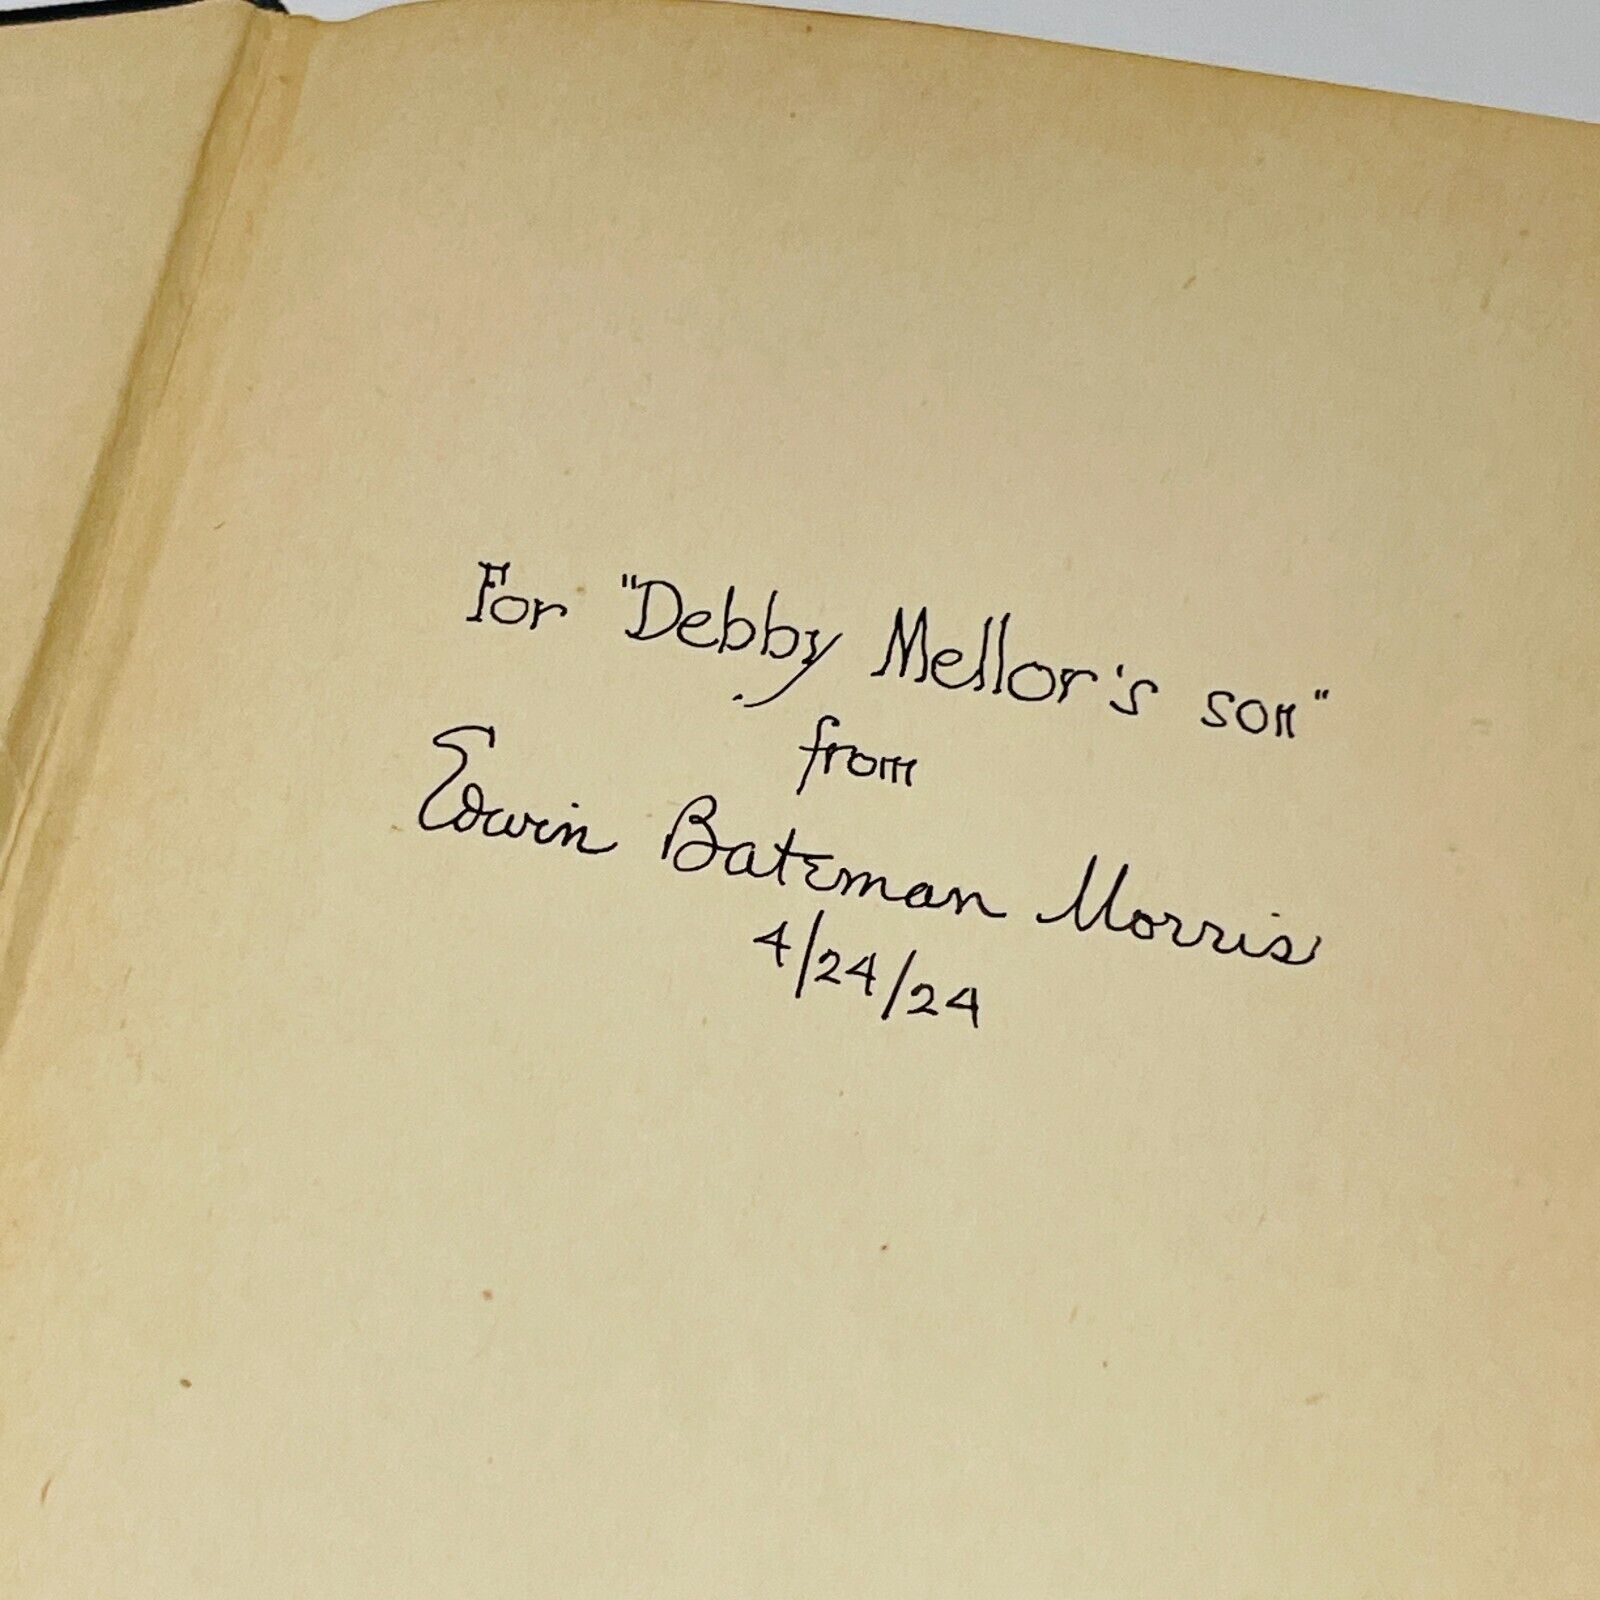 For "Debby Mellor's son"
from
Edwin Bateman Morris
4/24/24